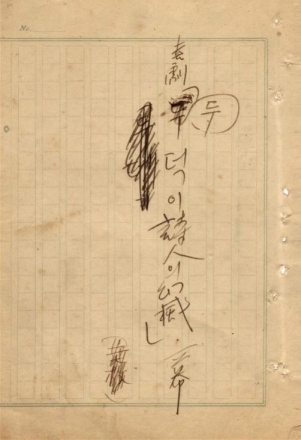 No.
喜劇 두덕이 詩人의幻滅」. 一幕